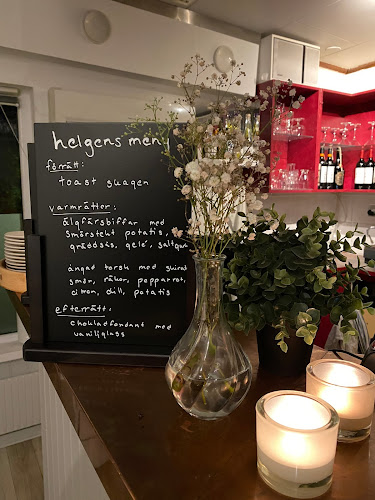 helgens meny
förrätt:
toast skagen
varmrätter:
älgfärsbiffar med
smörstekt potatis,
gräddsås, gelé, saltgurka
ångad torsk med skirat
smör, räkor, pepparrot,
citron, dill, potatis
efterrätt:
chokladfondant med
vaniljglass